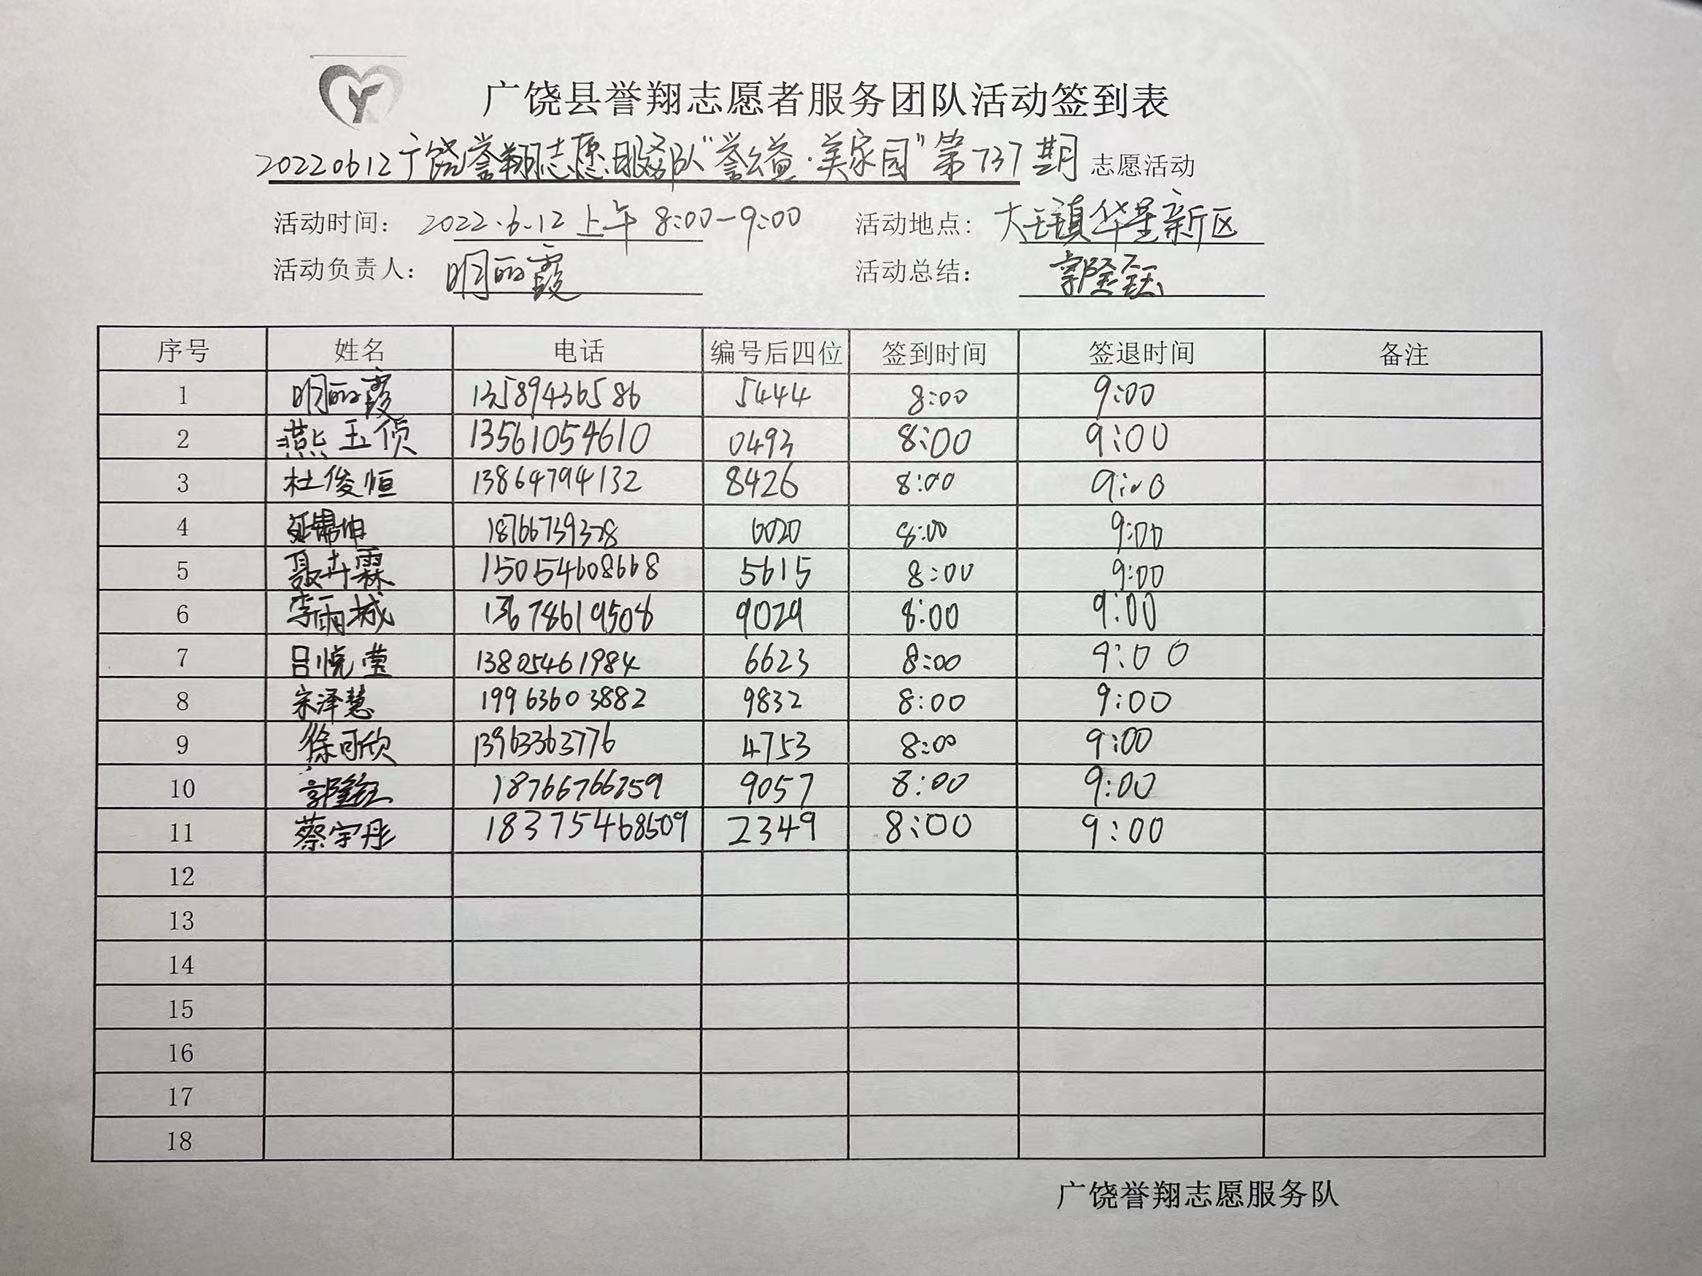 广饶县誉翔志愿者服务团队活动签到表
20220612广饶誉翔志愿服务队“誉公益·美家园”第737期 志愿活动
活动时间: 2022.6.12 上午 8:00-9:00 活动地点: 大王镇华星新区
活动负责人: 明丽霞 活动总结: 郭隆钰
序号 姓名 电话 编号后四位 签到时间 签退时间 备注
1 明丽霞 13589436586 5444 8:00 9:00
2 燕玉侦 13561054610 0493 8:00 9:00
3 杜俊恒 13864794132 8426 8:00 9:00
4 18766739328 0020 8:00 9:00
5 聂卉霖 15054608668 5615 8:00 9:00
6 李雨城 13678619508 9029 8:00 9:00
7 吕悦莹 13805461984 6623 8:00 9:00
8 宋泽慧 19963603882 9832 8:00 9:00
9 徐可欣 13963363776 4753 8:00 9:00
10 郭隆钰 18766766259 9057 8:00 9:00
11 蔡宇彤 18375468509 2349 8:00 9:00
12
13
14
15
16
17
18
广饶誉翔志愿服务队